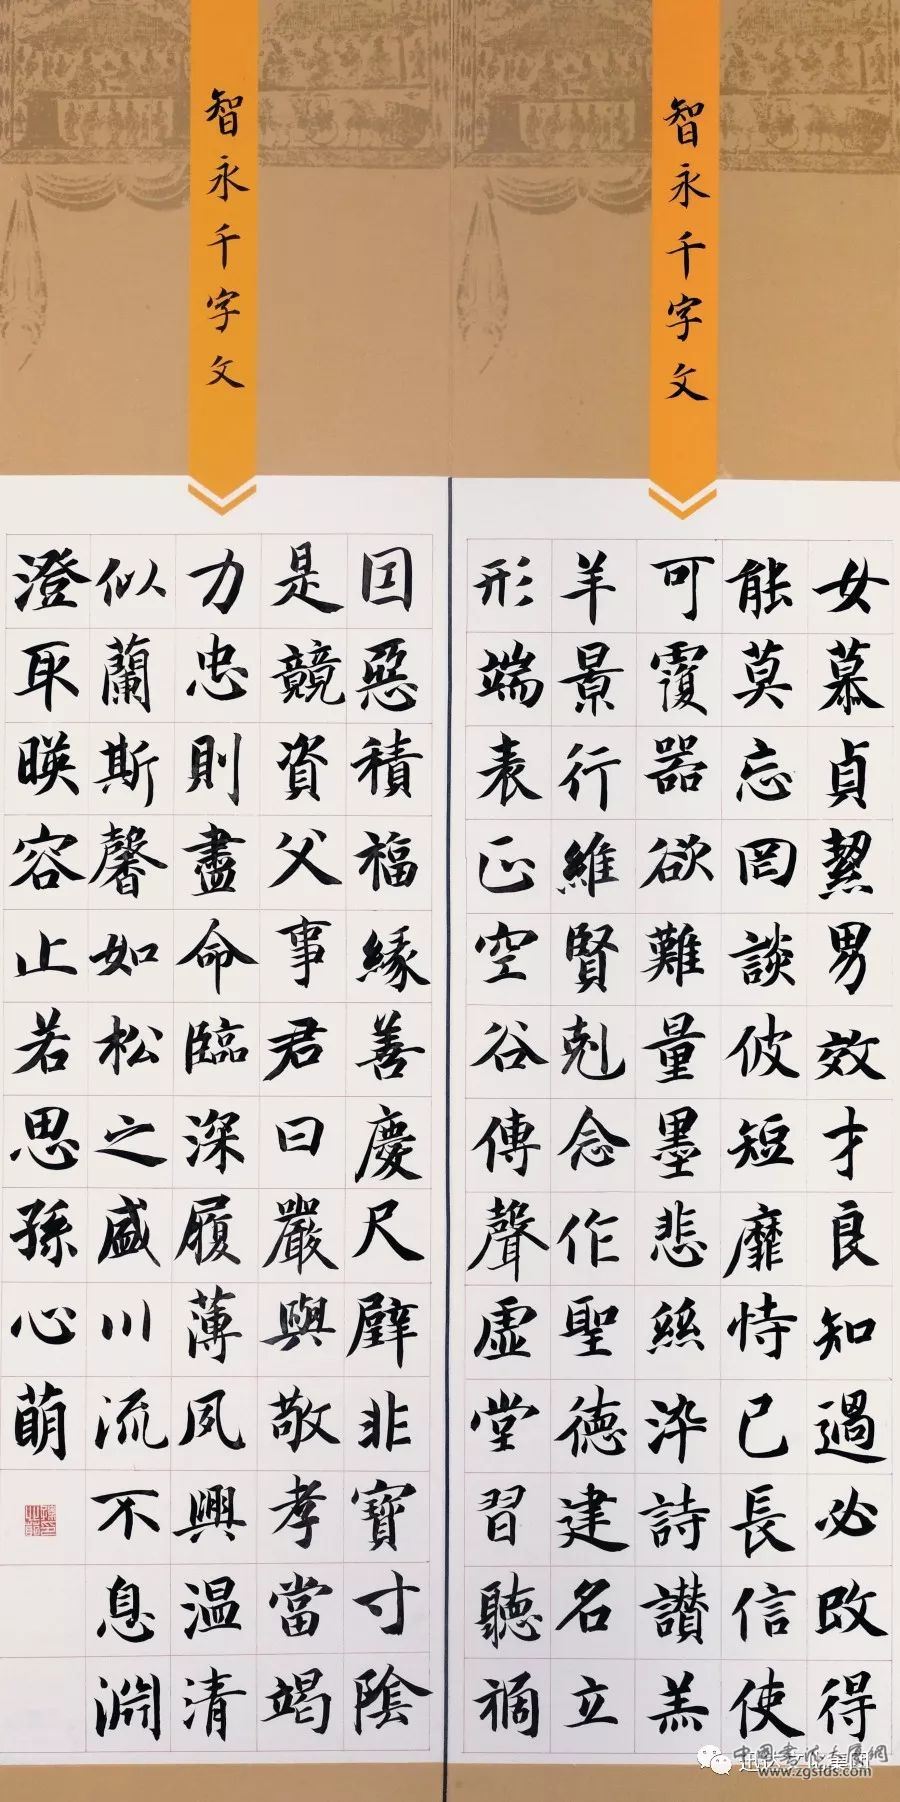 智永千字文
女慕貞絜男效才良知過必改得
能莫忘罔談彼短靡恃己長信使
可覆器欲難量墨悲絲淬詩讃羔
羊景行維賢剋念作聖德建名立
形端表正空谷傳聲虚堂習聽禍
智永千字文
因惡積福緣善慶尺璧非寶寸陰
是競資父事君曰嚴與敬孝當竭
力忠則盡命臨深履薄夙興温清
似蘭斯馨如松之盛川流不息淵
澄取暎容止若思孫心萌
中国书法大展网
www.zgsfds.com